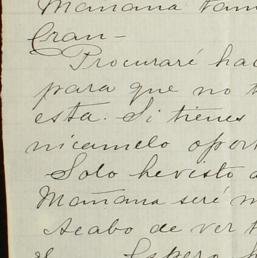 Mañana
Cran-
Procuraré
para que no
esta. Si tienes
nicamelo
Solo he visto
Mañana seré
Acabo de ver
el Espero